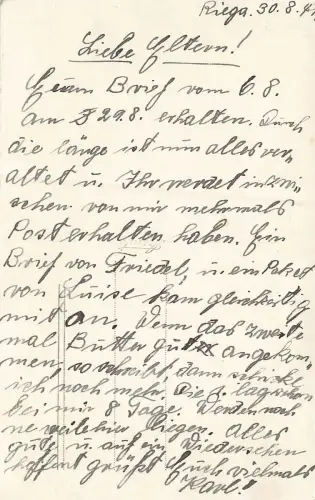 Riega. 30.8.41
Liebe Eltern!
Euern Brief vom 6.8.
am 29.8. erhalten. Durch
die länge ist nun alles ver„
altet u. Ihr werdet inzwi„
schen von mir mehrmals
Post erhalten haben. Ein
Brief von Friedel, u. ein Paket
von Luise kam gleichzeitig
mit an. Wenn das zweite
mal Butter gut angekom„
men, so schreibt, dann schicke
ich noch mehr. Die lag schon
bei mir 8 Tage. Werden noch
ne weile hier liegen. Alles
gute u. auf ein Wiedersehen
hoffend grüßt Euch vielmals
Karl!